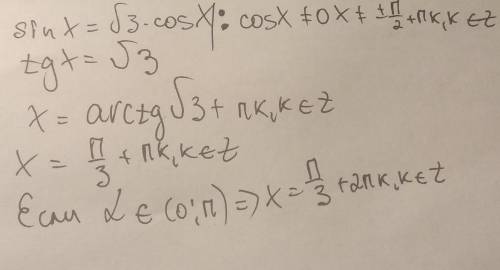 sin x = √3 · cos x | : cos x ≠ 0 x ≠ ± π/2 + πk, k ∈ Z
tg x = √3
x = arctg √3 + πk, k ∈ Z
x = π/3 + πk, k ∈ Z
Если α ∈ (0; π) => x = π/3 + 2πk, k ∈ Z